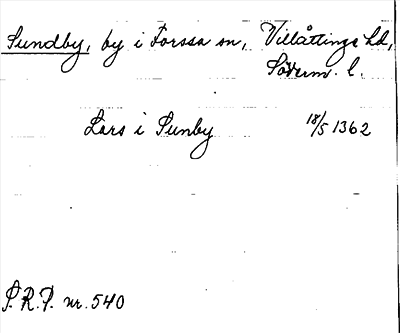 Sundby, by i Forssa sn, Villåttinge hd,
Söderm. l.
Lars i Sunby 18/5 1362
S.R.P. nr. 540